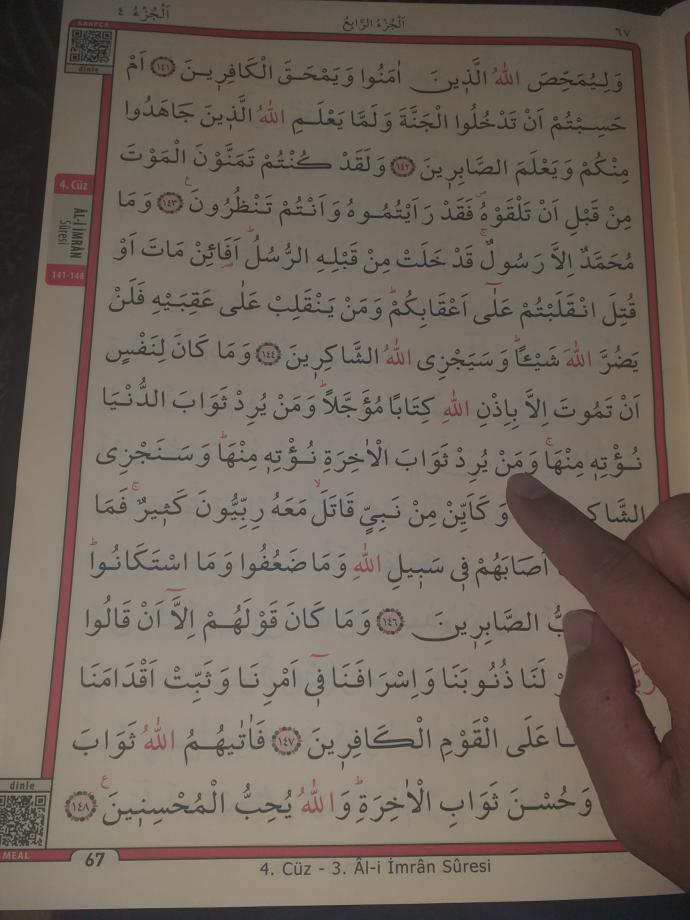 اَلْجُزْءُ ٤
اَلْجُزْءُ الرَّابِعُ
٦٧
ARAPÇA
dinle
وَلِيُمَحِّصَ اللّٰهُ الَّذ۪ينَ اٰمَنُوا وَيَمْحَقَ الْكَافِر۪ينَ ﴿١٤١﴾ اَمْ
حَسِبْتُمْ اَنْ تَدْخُلُوا الْجَنَّةَ وَلَمَّا يَعْلَمِ اللّٰهُ الَّذ۪ينَ جَاهَدُوا
مِنْكُمْ وَيَعْلَمَ الصَّابِر۪ينَ ﴿١٤٢﴾ وَلَقَدْ كُنْتُمْ تَمَنَّوْنَ الْمَوْتَ
مِنْ قَبْلِ اَنْ تَلْقَوْهُۖ فَقَدْ رَاَيْتُمُوهُ وَاَنْتُمْ تَنْظُرُونَ ﴿١٤٣﴾ وَمَا
مُحَمَّدٌ اِلَّا رَسُولٌۚ قَدْ خَلَتْ مِنْ قَبْلِهِ الرُّسُلُۜ اَفَا۬ئِنْ مَاتَ اَوْ
قُتِلَ انْقَلَبْتُمْ عَلٰٓى اَعْقَابِكُمْۜ وَمَنْ يَنْقَلِبْ عَلٰى عَقِبَيْهِ فَلَنْ
يَضُرَّ اللّٰهَ شَيْـًٔاۜ وَسَيَجْزِى اللّٰهُ الشَّاكِر۪ينَ ﴿١٤٤﴾ وَمَا كَانَ لِنَفْسٍ
اَنْ تَمُوتَ اِلَّا بِاِذْنِ اللّٰهِ كِتَابًا مُؤَجَّلًاۜ وَمَنْ يُرِدْ ثَوَابَ الدُّنْيَا
نُؤْتِه۪ مِنْهَاۚ وَمَنْ يُرِدْ ثَوَابَ الْاٰخِرَةِ نُؤْتِه۪ مِنْهَاۜ وَسَنَجْزِى
وَكَاَيِّنْ مِنْ نَبِيٍّ قَاتَلَۙ مَعَهُ رِبِّيُّونَ كَث۪يرٌۚ فَمَا
اَصَابَهُمْ ف۪ى سَب۪يلِ اللّٰهِ وَمَا ضَعُفُوا وَمَا اسْتَكَانُواۜ
الصَّابِر۪ينَ ﴿١٤٦﴾ وَمَا كَانَ قَوْلَهُمْ اِلَّٓا اَنْ قَالُوا
لَنَا ذُنُوبَنَا وَاِسْرَافَنَا ف۪ٓى اَمْرِنَا وَثَبِّتْ اَقْدَامَنَا
عَلَى الْقَوْمِ الْكَافِر۪ينَ ﴿١٤٧﴾ فَاٰتٰيهُمُ اللّٰهُ ثَوَابَ
وَحُسْنَ ثَوَابِ الْاٰخِرَةِۜ وَاللّٰهُ يُحِبُّ الْمُحْسِن۪ينَ ﴿١٤٨﴾
4. Cüz
ÂL-İ İMRÂN
Sûresi
141-148
dinle
MEAL
67
4. Cüz - 3. Âl-i İmrân Sûresi